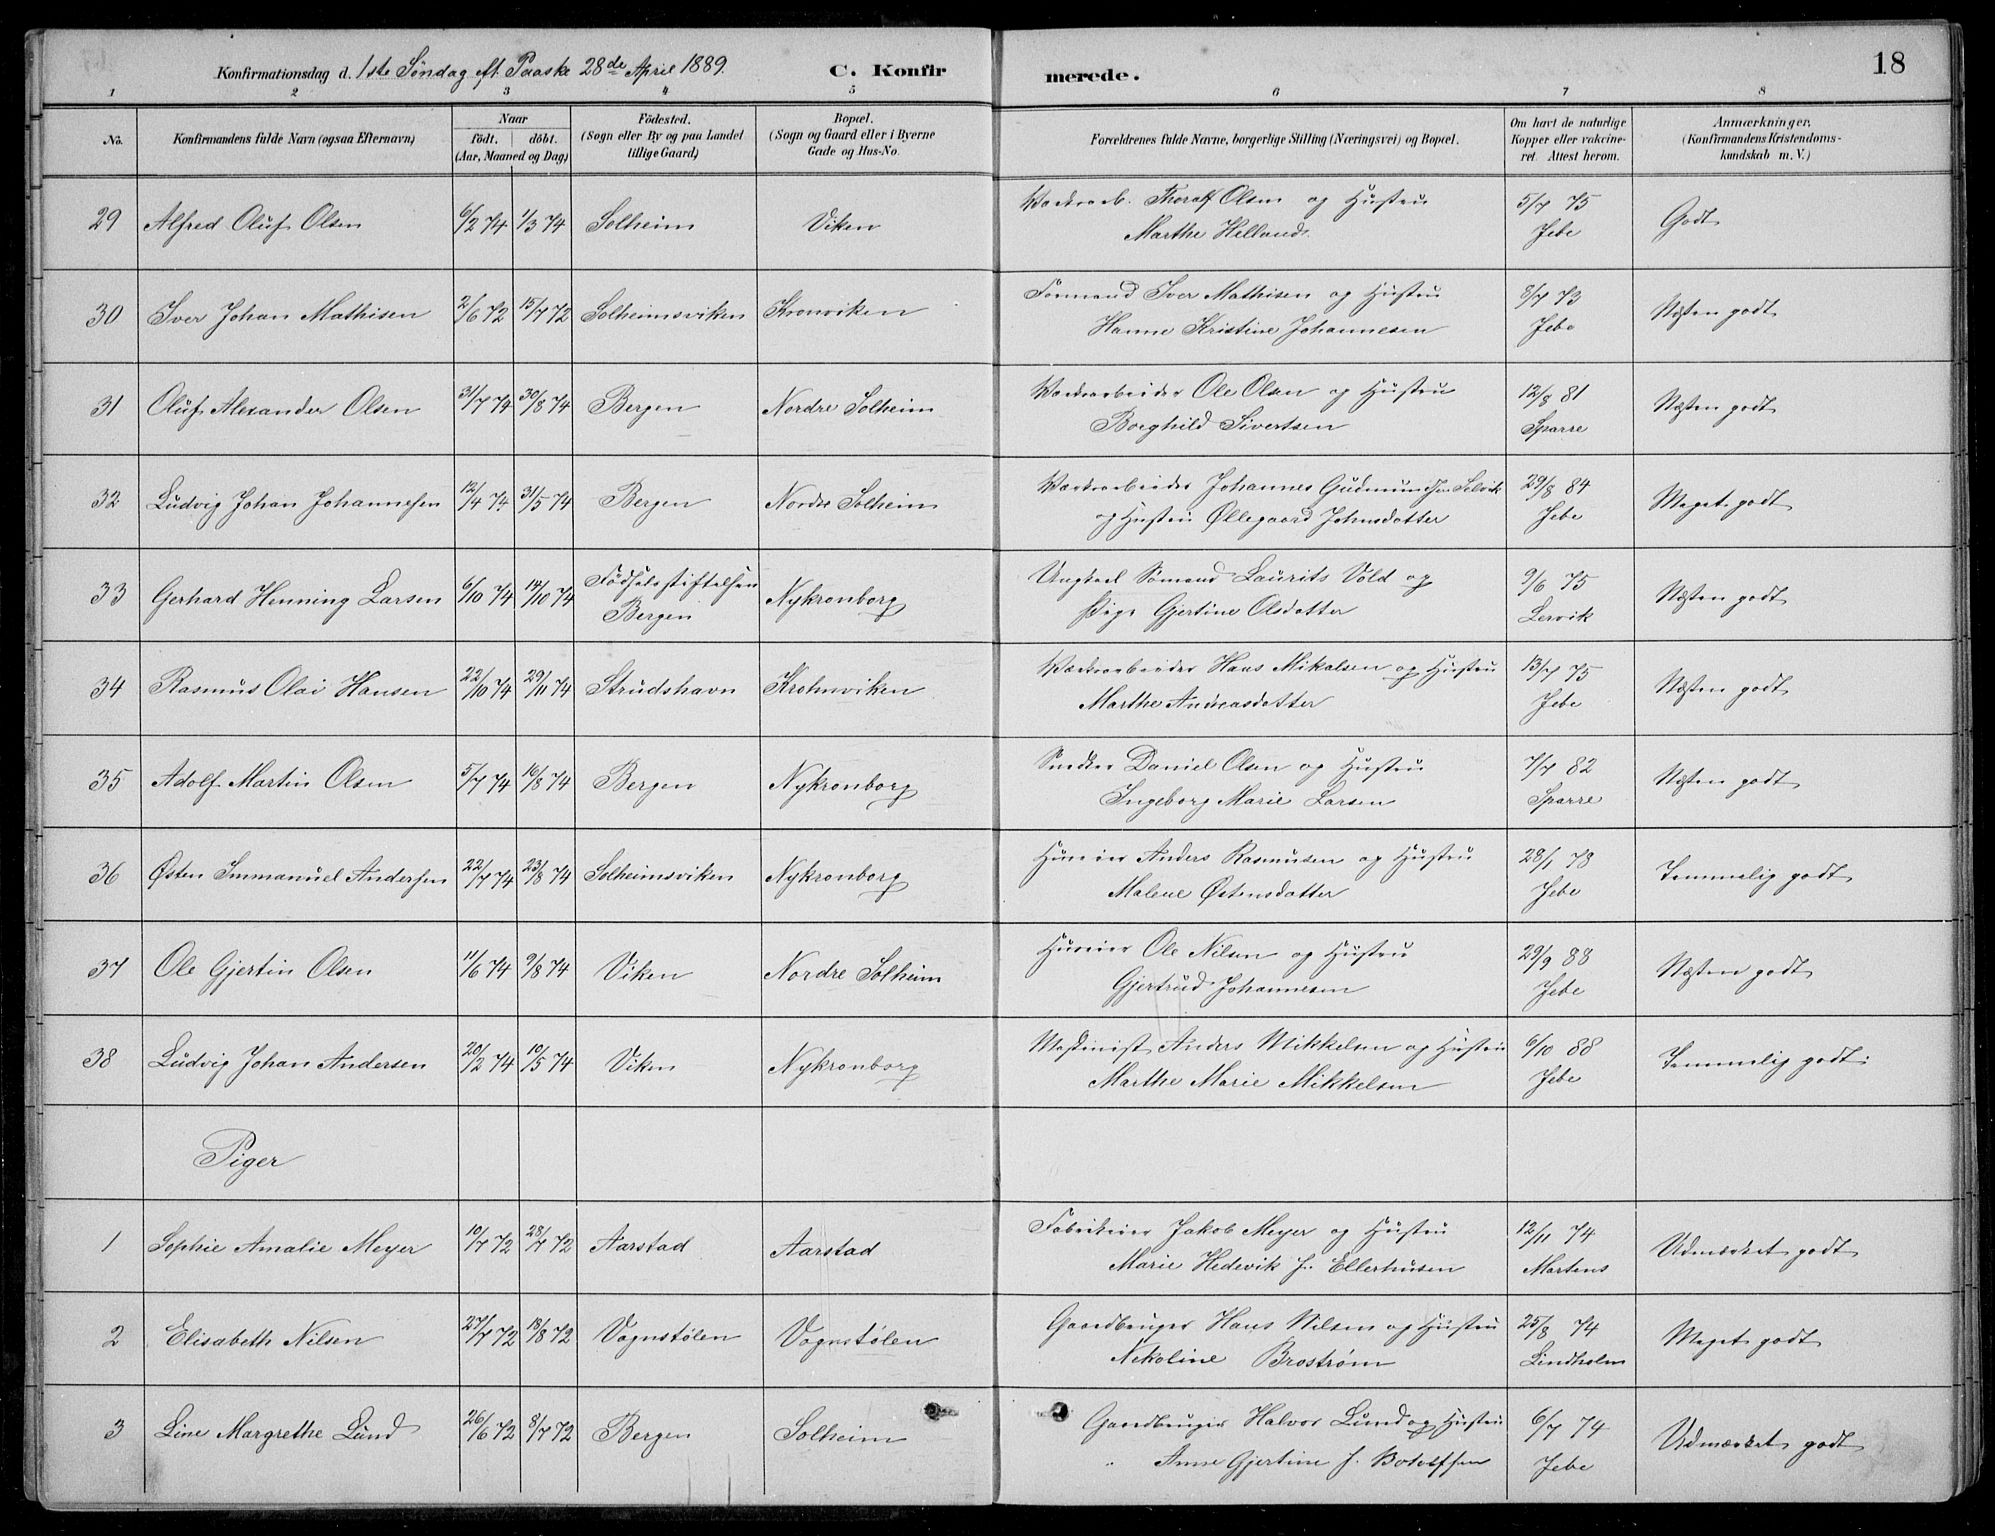 Konfirmationsdag d. 1ste Søndag eft. Paaske 28de April 1889. C. Konfirmerede. 18
1 2 3 4 5 6 7 8
No. Konfirmandens fulde Navn (ogsaa Efternavn) Naar født. døbt. (Aar, Maaned og Dag) Födested. (Sogn eller By og paa Landet tillige Gaard) Bopæl. (Sogn og Gaard eller i Byerne Gade og Hus-No. Forældrenes fulde Navne, borgerlige Stilling (Næringsvei) og Bopæl. Om havt de naturlige Kopper eller vakcineret. Attest herom. Anmærkninger. (Konfirmandens Kristendomskundskab m. V.)
29 Alfred Oluf Olsen 6/2 74 1/3 74 Solheim Viken Thoralf Olsen og Hustru 5/7 75 Godt
Marthe Helland Jebe
30 Iver Johan Mathisen 2/6 72 15/7 72 Solheimsviken Kronviken Formand Iver Mathisen og Hustru 8/7 73 Næsten godt
Hanne Kristine Johannesen Jebe
31 Oluf Alexander Olsen 31/7 74 30/8 74 Bergen Nordre Solheim Værksarbeider Ole Olsen og Hustru 12/8 81 Næsten godt
Borghild Sivertsen Sparre
32 Ludvig Johan Johannesen 12/4 74 31/5 74 Bergen Nordre Solheim Værksarbeider Johannes Gudmundsen Selvik 29/8 84 Meget godt
og Hustru Øllegaard Johnsdatter Jebe
33 Gerhard Henning Larsen 6/10 74 14/10 74 Födselsstiftelsen Bergen Nykronborg Ungkarl Sømand Laurits Vold og 9/6 75 Næsten godt
Pige Gjertine Olsdatter Lervik
34 Rasmus Olai Hansen 22/10 74 29/11 74 Strudshavn Krohnviken Værksarbeider Hans Mikalsen og Hustru 13/7 75 Næsten godt
Marthe Andreasdatter Jebe
35 Adolf Martin Olsen 5/7 74 16/8 74 Bergen Nykronborg Snedker Daniel Olsen og Hustru 7/7 82 Næsten godt
Ingeborg Marie Larsen Sparre
36 Østen Immanuel Andersen 22/7 74 23/8 74 Solheimsviken Nykronborg Huseier Anders Rasmusen og Hustru 28/1 78 Temmelig godt
Malene Østensdatter Jebe
37 Ole Gjertin Olsen 11/6 74 9/8 74 Viken Nordre Solheim Huseier Ole Nilsen og Hustru 29/9 88 Næsten godt
Gjertrud Johannesen Jebe
38 Ludvig Johan Andersen 20/2 74 10/5 74 Viken Nykronborg Maskinist Anders Mikkelsen og Hustru 6/10 88 Temmelig godt
Marthe Marie Mikkelsen Jebe
Piger
1 Sophie Amalie Meyer 10/7 72 28/7 72 Aarstad Aarstad Fabrikeier Jakob Meyer og Hustru 12/11 74 Udmærket godt
Marie Hedevik f. Ellerhusen Martens
2 Elisabeth Nilsen 27/7 72 18/8 72 Vognstølen Vognstølen Gaardbruger Hans Nilsen og Hustru 25/8 74 Meget godt
Nekoline Brostrøm Lindholm
3 Line Margrethe Lund 26/6 72 8/7 72 Bergen Solheim Gaardbruger Halvor Lund og Hustru 6/7 74 Udmærket godt
Anne Gjertine f. Botolfsen Jebe